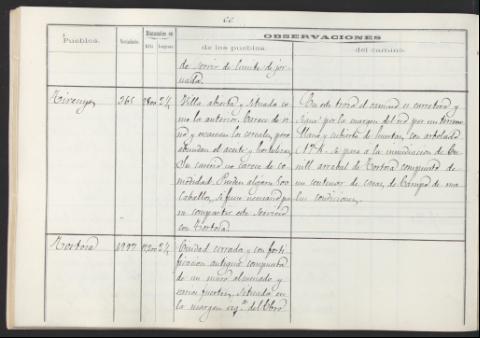 OBSERVACIONES
Pueblos.
Vecindario.
de los pueblos.
del camino.
de servir de limite de jor-
nada.
Tivenys
365
2¼
Villa abierta y situada co-
mo la anterior. Carece de vi-
no y escasean los cereales, pero
abundan el aceite y hortalizas.
Su caserio no carece de co-
modidad. Pueden alojarse 500
caballos, si fuese necesario pa-
ra compartir este servicio
con Tortosa.
En este trozo el camino es carretero y
sigue por la margen del rio por un terreno
llano y cubierto de huertas, con arbolado.
se pasa a la inmediacion de
arrabal de Tortosa compuesto de
un centenar de casas, de Campo de ma-
las condiciones.
Tortosa
4997
2¼
Ciudad cerrada y con forti-
ficacion antigua compuesta
de un muro almenado y
varios fuertes, situada en
la margen izqª. del Ebro